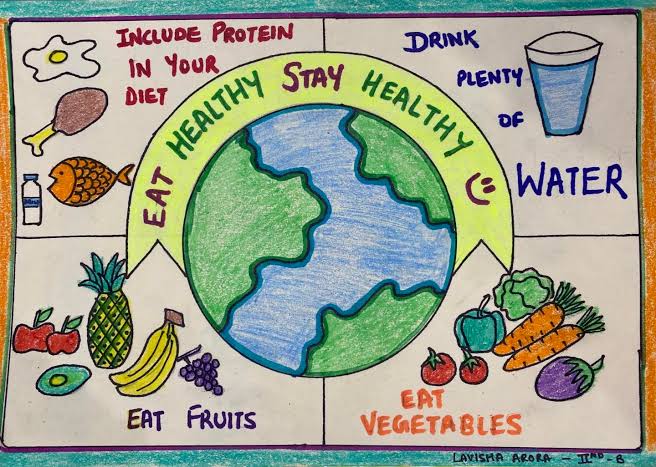 INCLUDE PROTEIN
IN YOUR
DIET
DRINK
PLENTY
OF
WATER
EAT HEALTHY STAY HEALTHY
EAT FRUITS
EAT
VEGETABLES
LAVISHA ARORA - IIND - B